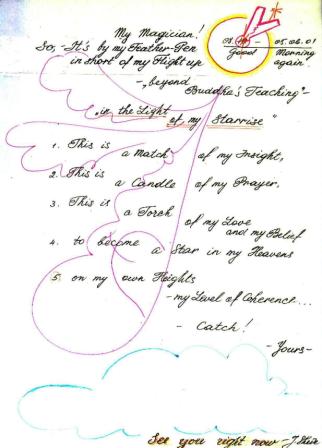 My Magician!
So, - It's by my Feather-Pen
in short of my Flight up
05.06.01
Good Morning
again.
"beyond
Buddha's Teaching" -
"in the Light
of my Starrise"
1. This is
a Match of my Insight,
2. This is
a Candle of my Prayer.
3. This is
a Torch
of my Love
and my Belief
4. to become
a Star in my Heavens
5. on my own Heights
- my Level of Coherence...
- Catch!
- Yours -
See you right now -